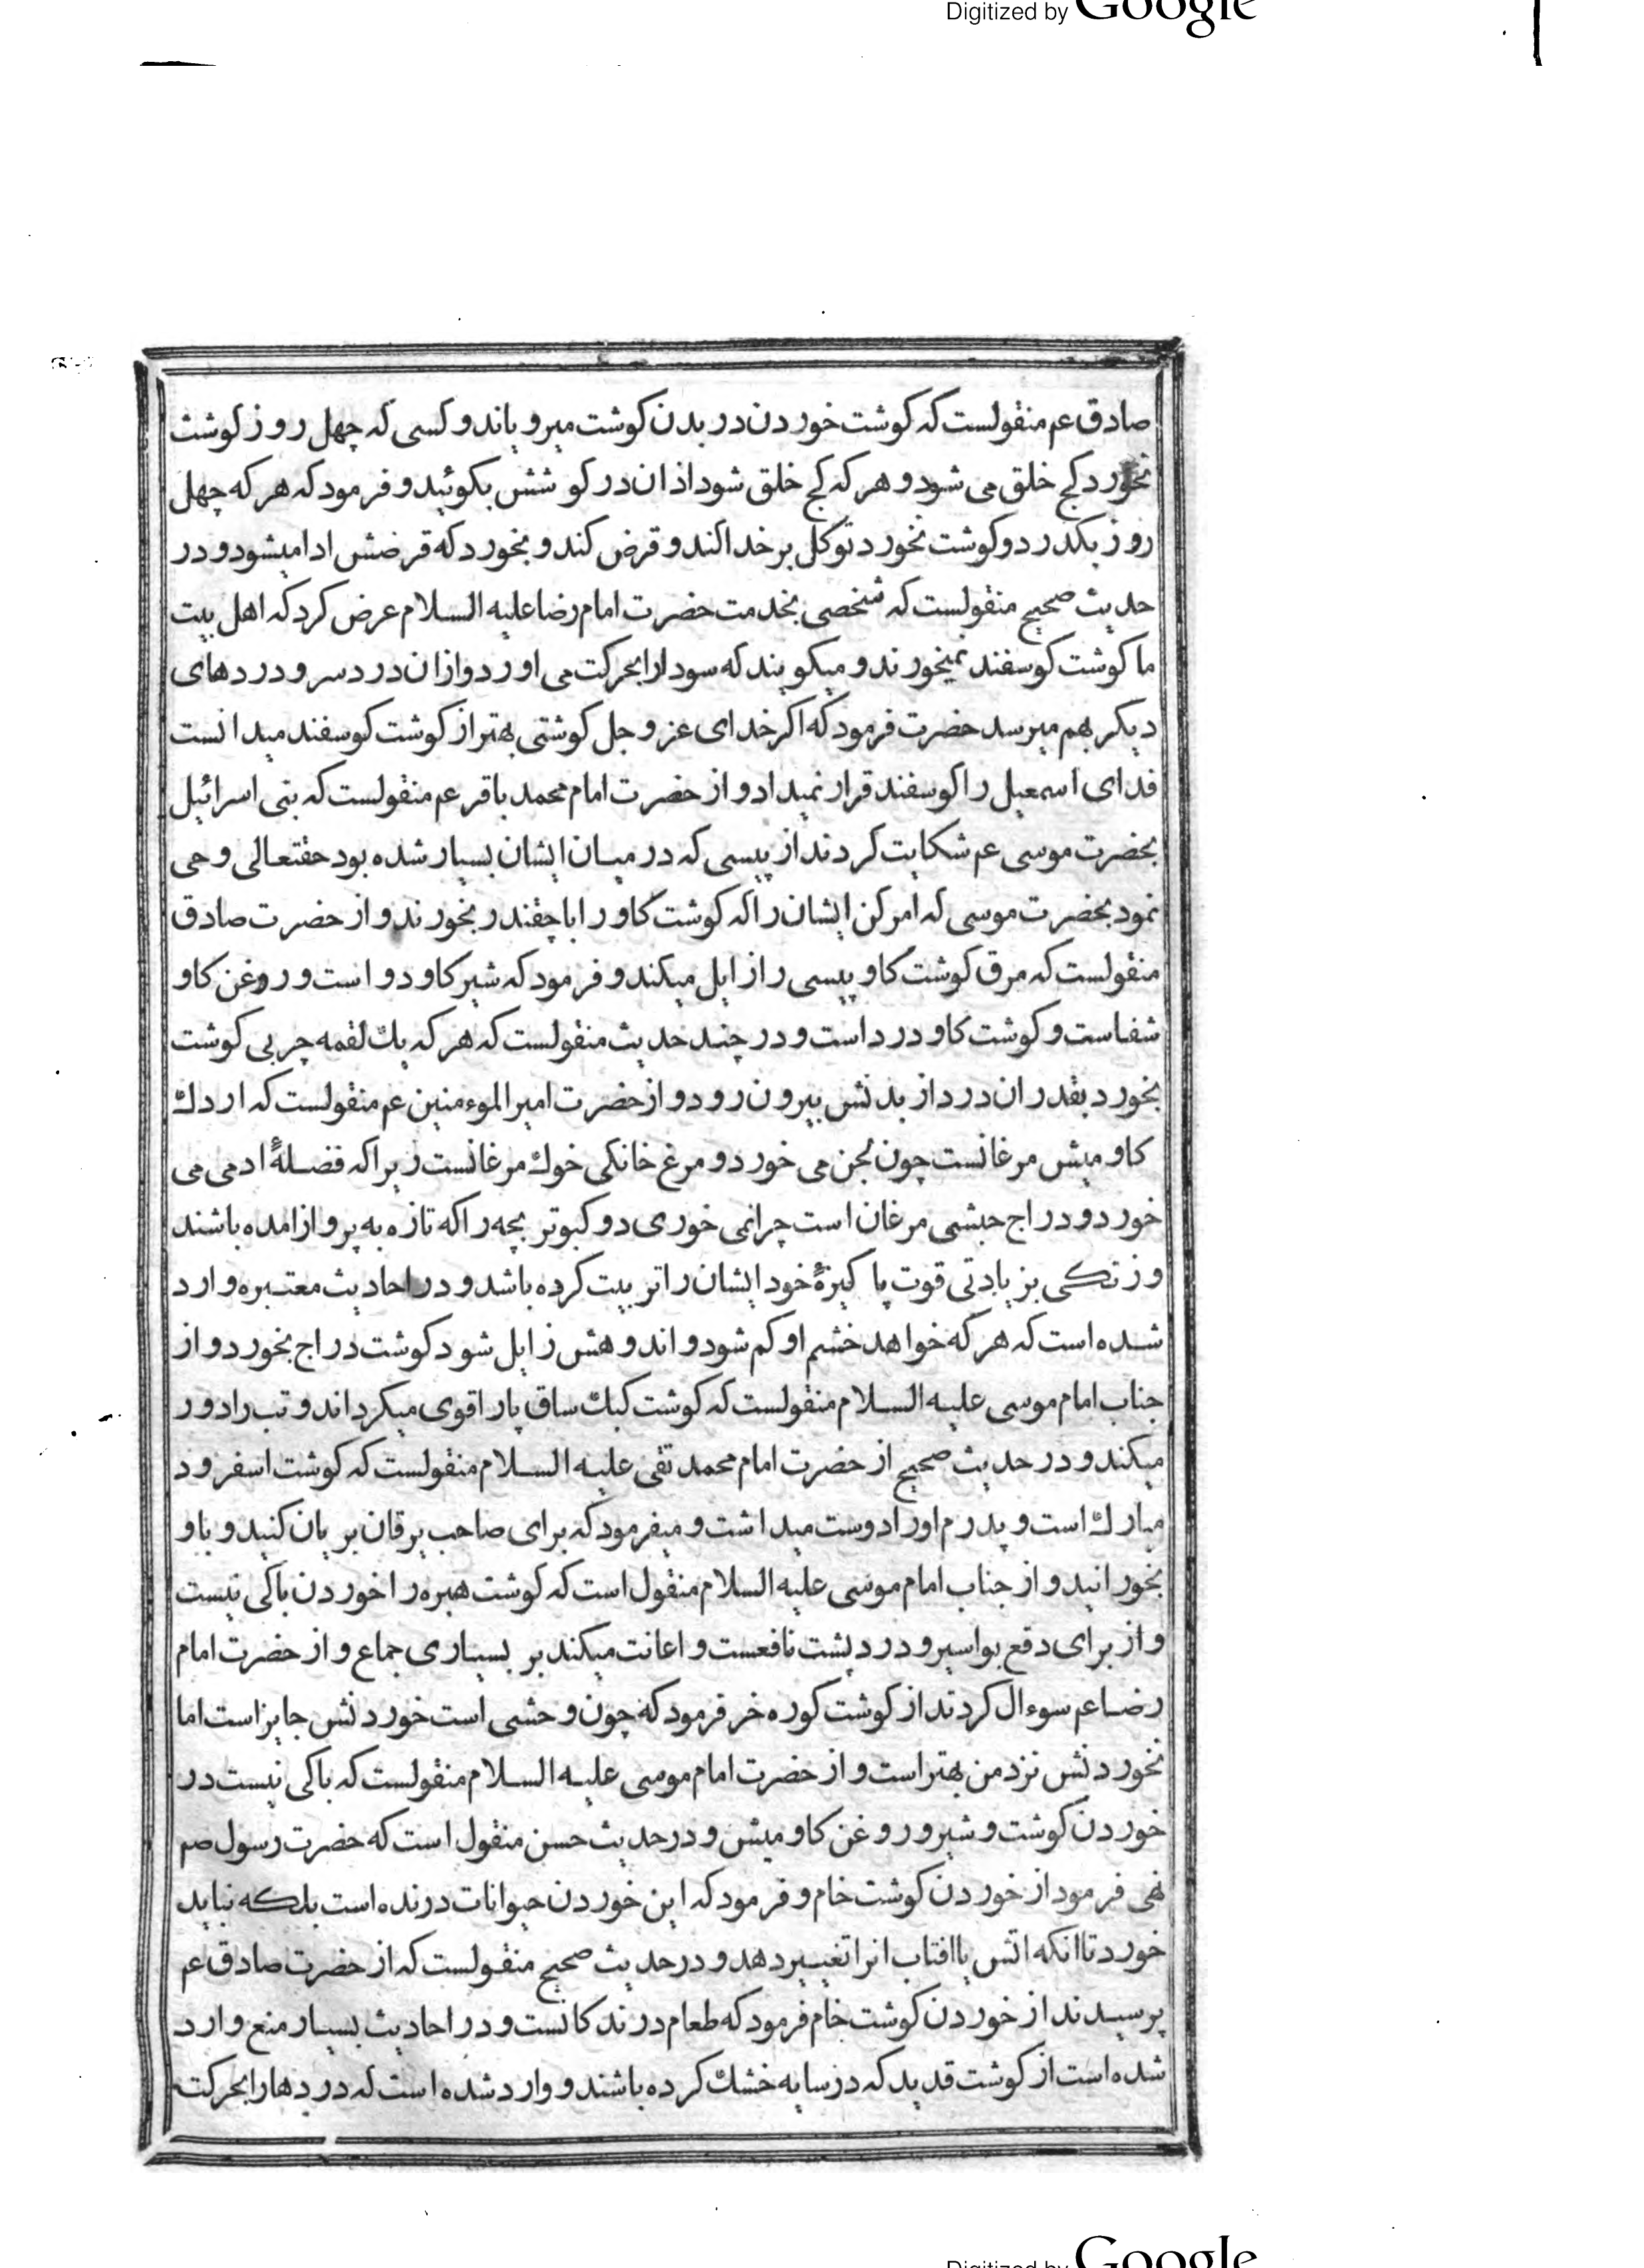 Digitized by Google
صادق عم منقولست که کوشت خوردن در بدن کوشت میرویاند و کسی که چهل روز کوشت
نخورد کج خلق می شود و هر که کج خلق شود اذان در کو شش بکوئید و فرمود که هر که چهل
روز بکذرد و کوشت نخورد توکل بر خدا کند و قرض کند و بخورد که قرضش ادا میشود و در
حدیث صحیح منقولست که شخصی بخدمت حضرت امام رضا علیه السلام عرض کرد که اهل بیت
ما کوشت کوسفند نمیخورند و میکویند که سودا را بحرکت می اورد و ازان درد سر و دردهای
دیکر بهم میرسد حضرت فرمود که اکر خدای عز و جل کوشتی بهتر از کوشت کوسفند میدانست
فدای اسمعیل را کوسفند قرار نمیداد و از حضرت امام محمد باقر عم منقولست که بنی اسرائیل
بحضرت موسی عم شکایت کردند از پیسی که در میان ایشان بسیار شده بود حقتعالی وحی
نمود بحضرت موسی که امر کن ایشان را که کوشت کاو را با چقندر بخورند و از حضرت صادق
منقولست که مرق کوشت کاو پیسی را زایل میکند و فرمود که شیر کاو دواست و روغن کاو
شفاست و کوشت کاو درداست و در چند حدیث منقولست که هر که یك لقمه چربی کوشت
بخورد بقدر ان درد از بدنش بیرون رود و از حضرت امیر الموءمنین عم منقولست که اردك
کاو میش مرغانست چون لجن می خورد و مرغ خانکی خوك مرغانست زیرا که فضلهٔ ادمی می
خورد و دراج حبشی مرغان است چرا نمی خوری دو کبوتر بچه را که تازه به پرواز امده باشند
و زنکی بزیادتی قوت پاکیزهٔ خود ایشان را تربیت کرده باشد و در احادیث معتبره وارد
شده است که هر که خواهد خشم او کم شود و اندوهش زایل شود کوشت دراج بخورد و از
جناب امام موسی علیه السلام منقولست که کوشت کبك ساق پا را قوی میکرداند و تب را دور
میکند و در حدیث صحیح از حضرت امام محمد تقی علیه السلام منقولست که کوشت اسفرود
مبارك است و پدرم او را دوست میداشت و میفرمود که برای صاحب یرقان بریان کنید و باو
بخورانید و از جناب امام موسی علیه السلام منقول است که کوشت هبره را خوردن باکی نیست
و از برای دفع بواسیر و درد پشت نافعست و اعانت میکند بر بسیاری جماع و از حضرت امام
رضا عم سوءال کردند از کوشت کوره خر فرمود که چون وحشی است خوردنش جایز است اما
نخوردنش نزد من بهتر است و از حضرت امام موسی علیه السلام منقولست که باکی نیست در
خوردن کوشت و شیر و روغن کاو میش و در حدیث حسن منقول است که حضرت رسول صم
نهی فرمود از خوردن کوشت خام و فرمود که این خوردن حیوانات درنده است بلکه نباید
خورد تا انکه اتش یا افتاب انرا تغییر دهد و در حدیث صحیح منقولست که از حضرت صادق عم
پرسیدند از خوردن کوشت خام فرمود که طعام درندکانست و در احادیث بسیار منع وارد
شده است از کوشت قدید که در سایه خشك کرده باشند و وارد شده است که دردها را بحرکت
Digitized by Google